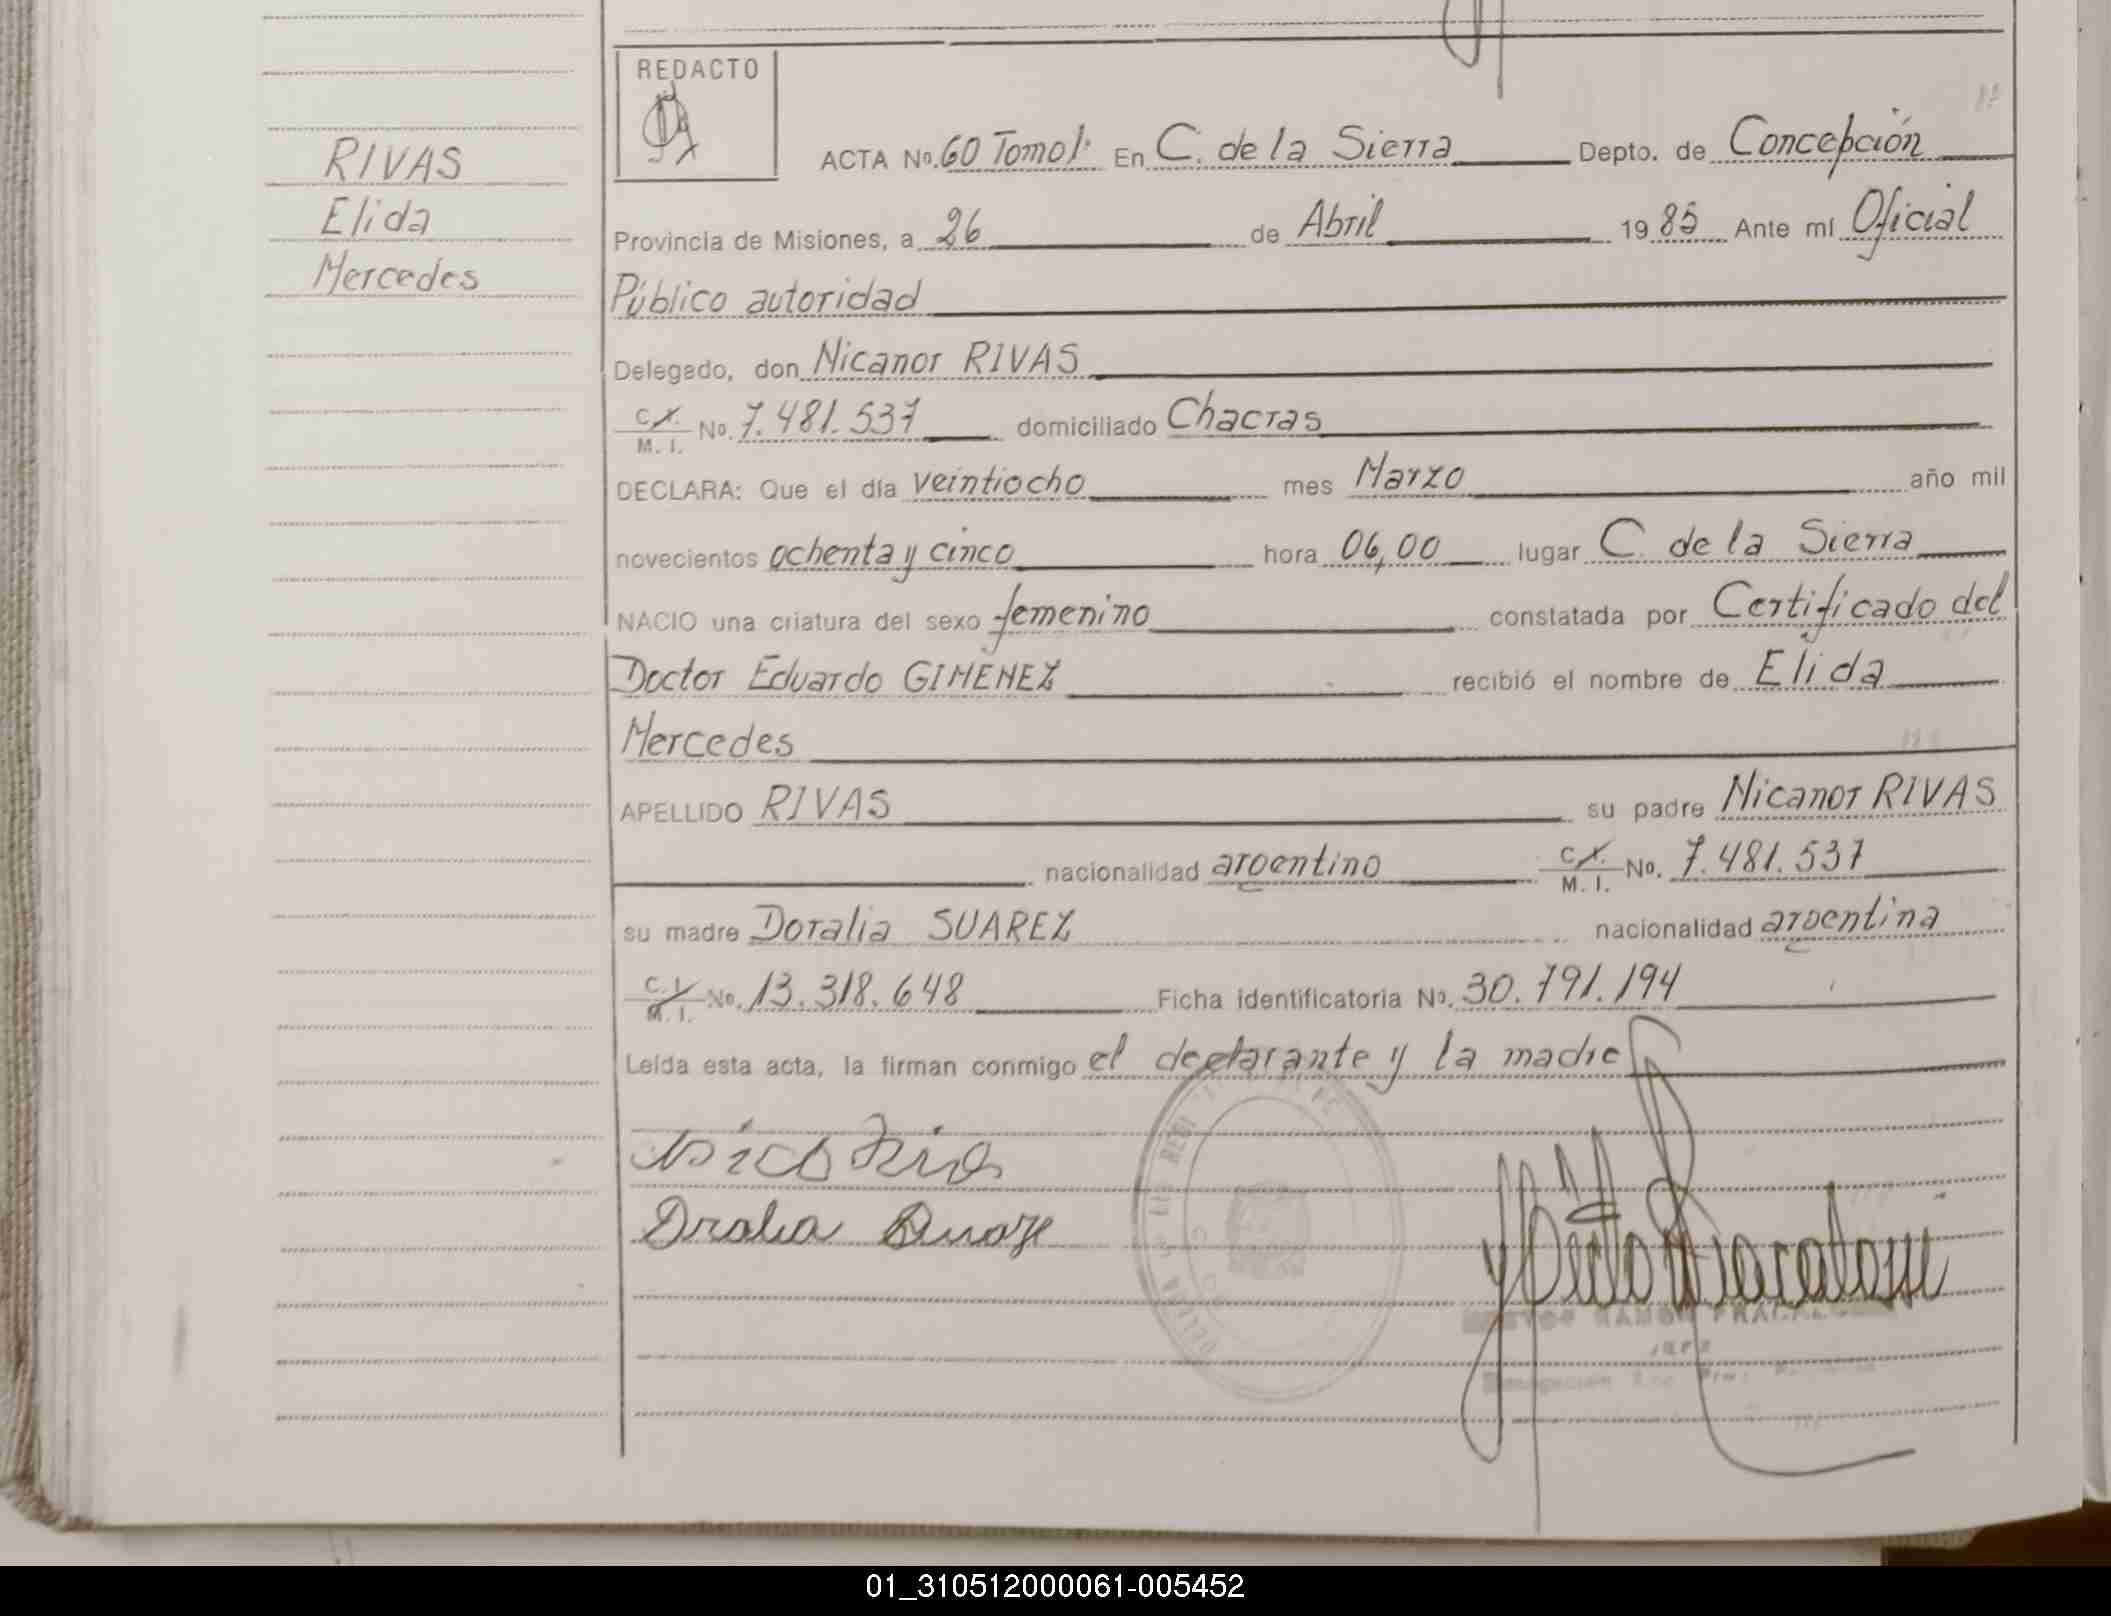 RIVAS
Elida
Mercedes
REDACTO
ACTA No. 60 Tomo I: En C. de la Sierra Depto. de Concepción
Provincia de Misiones, a 26 de Abril 1985 Ante mí Oficial
Público autoridad
Delegado, don Nicanor RIVAS
C.I. / M. I. No. 7.481.537 domiciliado Chacras
DECLARA: Que el día veintiocho mes Marzo año mil
novecientos ochenta y cinco hora 06,00 lugar C. de la Sierra
NACIO una criatura del sexo femenino constatada por Certificado del
Doctor Eduardo GIMENEZ recibió el nombre de Elida
Mercedes
APELLIDO RIVAS su padre Nicanor RIVAS
nacionalidad argentino C.I. / M. I. No. 7.481.537
su madre Doralia SUAREZ nacionalidad argentina
C.I. / M. I. No. 13.318.648 Ficha identificatoria No. 30.791.194
Leída esta acta, la firman conmigo el declarante y la madre
01_310512000061-005452